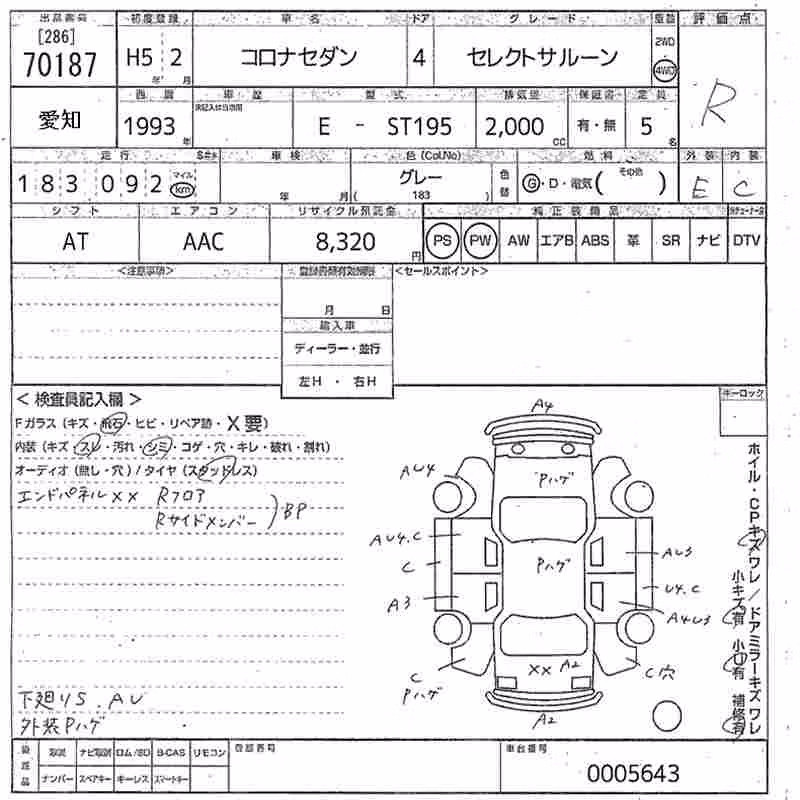 出品番号 初度登録 車名 ドア グレード 駆動 評価点
[286] 70187 H5 2 年 月 コロナセダン 4 セレクトサルーン 2WD 4WD R
西暦 車歴 型式 排気量 保証書 定員
愛知 1993 年 E - ST195 2,000 CC 有・無 5 名
走行 車検 色(Col.No) 燃料 外装 内装
183 092 マイル km 年 月 グレー ( 183 ) 色替 G・D・電気( その他 ) E C
シフト エアコン リサイクル預託金 純正装備品
AT AAC 8,320 円 PS PW AW エアB ABS 革 SR ナビ DTV
<注意事項> 登録書類有効期限 <セールスポイント>
月 日
輸入車
ディーラー・並行
左H ・ 右H
<検査員記入欄> キーロック
Fガラス(キズ・飛石・ヒビ・リペア跡・X要)
内装(キズ・スレ・汚れ・シミ・コゲ・穴・キレ・破れ・割れ)
オーディオ(無し・穴)/タイヤ(スタッドレス)
エンドパネルXX Rフロア
Rサイドメンバー )BP
A4
Pハゲ
AU4
AU4.C
Pハゲ
AU3
C
U4.C
A3
A4U3
C
Pハゲ
XX A2
C穴
A2
ホイル・CPキズワレ/ドアミラーキズワレ
小キズ有 小凹有 補修有
下廻りS.AU
外装Pハゲ
後送品 取説 ナビ取説 ロム/SD B-CAS リモコン 登録番号 車台番号
ナンバー スペアキー キーレス スマートキー 0005643